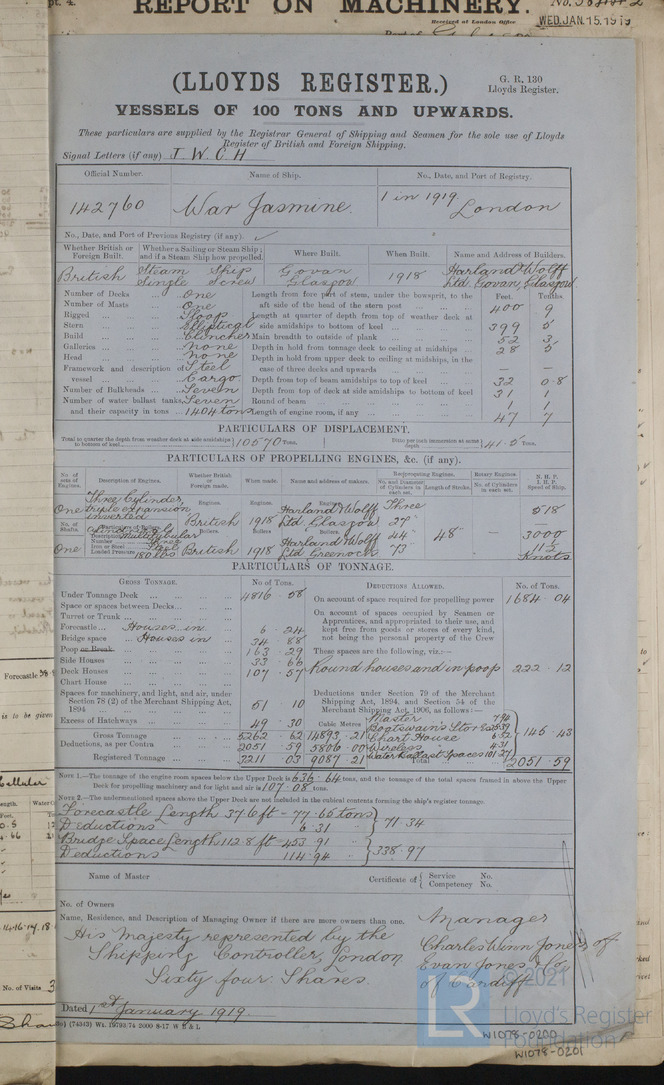 REPORT ON MACHINERY.
Received at London Office WED. JAN. 15. 1919
(LLOYDS REGISTER.)
G. R. 130
Lloyds Register.
VESSELS OF 100 TONS AND UPWARDS.
These particulars are supplied by the Registrar General of Shipping and Seamen for the sole use of Lloyds
Register of British and Foreign Shipping.
Signal Letters (if any) J W C H
Official Number. Name of Ship. No., Date, and Port of Registry.
142760 War Jasmine. 1 in 1919. London
No., Date, and Port of Previous Registry (if any).
Whether British or Foreign Built. Whether a Sailing or Steam Ship; and if a Steam Ship how propelled. Where Built. When Built. Name and Address of Builders.
British Steam Ship Single Screw Govan Glasgow 1918 Harland & Wolff Ltd. Govan, Glasgow
Feet. Tenths.
Number of Decks One Length from fore part of stem, under the bowsprit, to the
Number of Masts One aft side of the head of the stern post 400 9
Rigged Sloop Length at quarter of depth from top of weather deck at
Stern Elliptical side amidships to bottom of keel 399 5
Build Clincher Main breadth to outside of plank 52 3
Galleries None Depth in hold from tonnage deck to ceiling at midships 28 5
Head None Depth in hold from upper deck to ceiling at midships, in the
Framework and description of vessel Steel Cargo. case of three decks and upwards — —
Depth from top of beam amidships to top of keel 32 0.8
Number of Bulkheads Seven Depth from top of deck at side amidships to bottom of keel 31 1
Number of water ballast tanks, Seven Round of beam 1 1
and their capacity in tons 1404 tons Length of engine room, if any 47 7
PARTICULARS OF DISPLACEMENT.
Total to quarter the depth from weather deck at side amidships to bottom of keel 10570 Tons. Ditto per inch immersion at same depth 41.5 Tons.
PARTICULARS OF PROPELLING ENGINES, &c. (if any).
No. of sets of Engines. Description of Engines. Whether British or Foreign made. When made. Name and address of makers. Reciprocating Engines. Rotary Engines. N.H.P. I.H.P. Speed of Ship.
No. and Diameter of Cylinders in each set. Length of Stroke. No. of Cylinders in each set.
Engines. Engines. Engines.
One Three Cylinder triple expansion inverted British 1918 Harland & Wolff Ltd. Glasgow Three 27" 518
No. of Shafts. Description of Boilers. Boilers Boilers Boilers.
Description Cylindrical Multitubular 44" 48" — 3000
Number Three
Iron or Steel Steel
Loaded Pressure 180 lbs
One British 1918 Harland & Wolff Ltd Greenock 73" 11½ Knots
PARTICULARS OF TONNAGE.
GROSS TONNAGE. No of Tons. DEDUCTIONS ALLOWED. No. of Tons.
Under Tonnage Deck 4816 58 On account of space required for propelling power 1684 04
Space or spaces between Decks On account of spaces occupied by Seamen or
Turret or Trunk Apprentices, and appropriated to their use, and
Forecastle Houses in 6 24 kept free from goods or stores of every kind,
Bridge space Houses in 34 88 not being the personal property of the Crew
Poop or Break 163 29 These spaces are the following, viz.:—
Side Houses 33 66
Deck Houses 107 57 Round houses and in poop 222 12
Chart House
Spaces for machinery, and light, and air, under Deductions under Section 79 of the Merchant
Section 78 (2) of the Merchant Shipping Act, Shipping Act, 1894, and Section 54 of the
1894 51 10 Merchant Shipping Act, 1906, as follows:—
Excess of Hatchways 49 30 Cubic Metres Master 7.94
Boatswain's Stores
Gross Tonnage 5262 62 14893 21 Chart House 6.32 145 43
Deductions, as per Contra 2051 59 5806 00 Wireless 4.31
Registered Tonnage 3211 03 9087 21 Water Ballast Spaces 101.27
Total 2051 59
NOTE 1.—The tonnage of the engine room spaces below the Upper Deck is 636.64 tons, and the tonnage of the total spaces framed in above the Upper
Deck for propelling machinery and for light and air is 107.08 tons.
NOTE 2.—The undermentioned spaces above the Upper Deck are not included in the cubical contents forming the ship's register tonnage.
Forecastle Length 37.6 ft - 77.65 tons
Deductions 6.31 " 71.34
Bridge Space Length 112.8 ft - 453.91 "
Deductions 114.94 " 338.97
Name of Master Certificate of Service No. Competency No.
No. of Owners
Name, Residence, and Description of Managing Owner if there are more owners than one.
Manager
His Majesty represented by the
Shipping Controller, London
Sixty four Shares.
Charles Wenn Jones of
Evan Jones & Co
of Cardiff
Dated 1st January 1919.
(74343) Wt. 19793/74 2000 8-17 W B & L
© 2021
LR
Lloyd's Register
Foundation
W1078-0200
W1078-0201
Forecastle
is to be given
No. of Visits 3